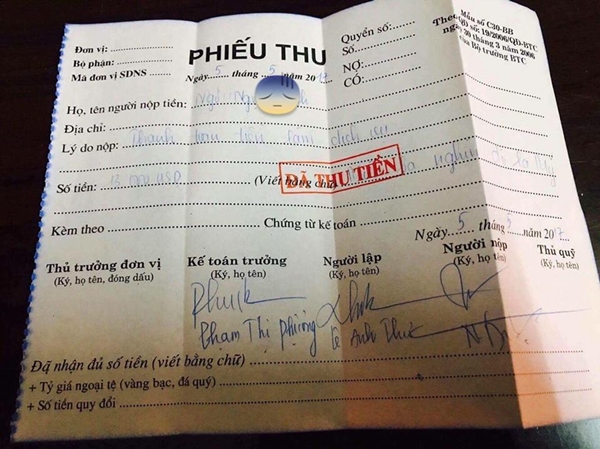 Đơn vị:
Bộ phận:
Mã đơn vị SDNS
PHIẾU THU
Ngày 5 tháng 5 năm 20
Quyển số:
Số:
NỢ:
CÓ:
Mẫu số C30-BB
Theo QĐ số: 19/2006/QĐ-BTC
ngày 30 tháng 3 năm 2006
của Bộ trưởng BTC
Họ, tên người nộp tiền:
Địa chỉ:
Lý do nộp: Thanh toán tiền làm dịch vụ
Số tiền: 13.000 USD (Viết bằng chữ)
ĐÃ THU TIỀN
Kèm theo Chứng từ kế toán
Ngày 5 tháng 5 năm 2017
Thủ trưởng đơn vị Kế toán trưởng Người lập Người nộp Thủ quỹ
(Ký, họ tên, đóng dấu) (Ký, họ tên) (Ký, họ tên) (Ký, họ tên) (Ký, họ tên)
Phạm Thị Phượng Lê Anh Thư
Đã nhận đủ số tiền (viết bằng chữ)
+ Tỷ giá ngoại tệ (vàng bạc, đá quý)
+ Số tiền quy đổi